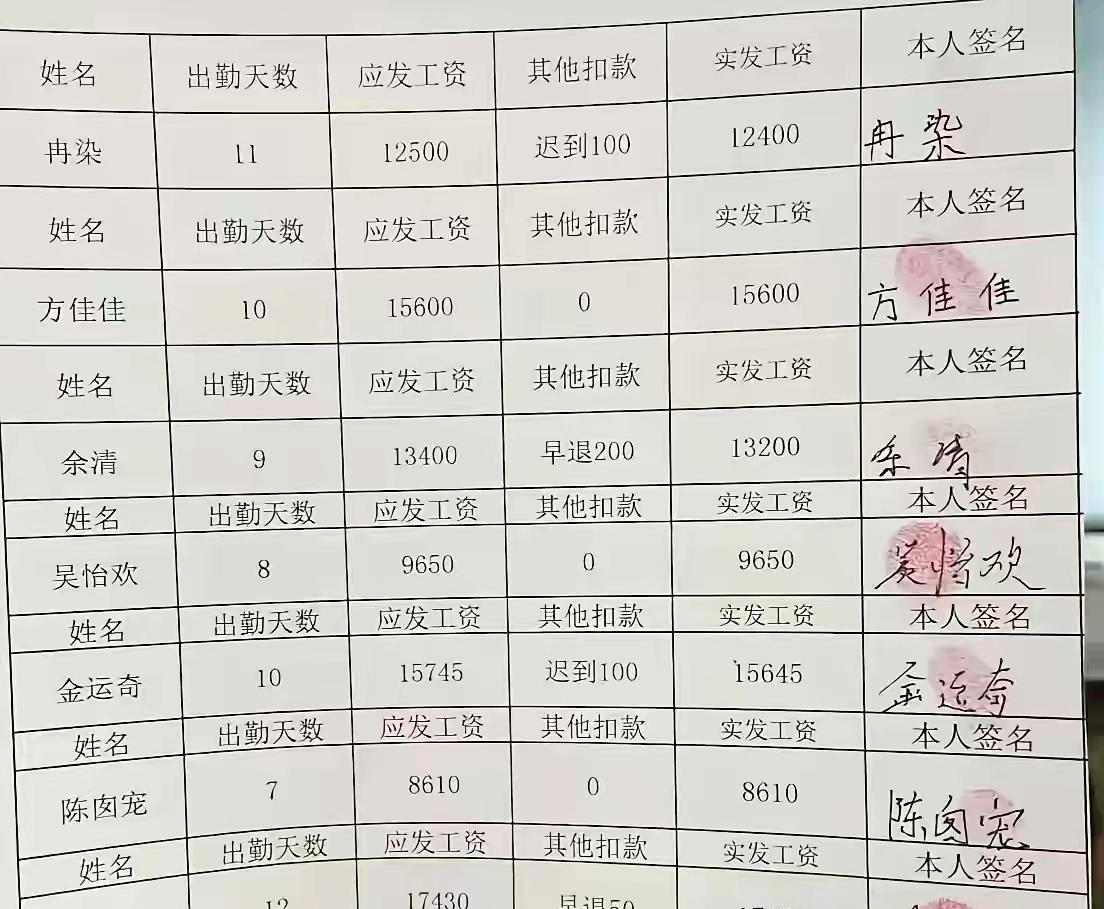 姓名 出勤天数 应发工资 其他扣款 实发工资 本人签名
冉染 11 12500 迟到100 12400 冉染
姓名 出勤天数 应发工资 其他扣款 实发工资 本人签名
方佳佳 10 15600 0 15600 方佳佳
姓名 出勤天数 应发工资 其他扣款 实发工资 本人签名
余清 9 13400 早退200 13200 余清
姓名 出勤天数 应发工资 其他扣款 实发工资 本人签名
吴怡欢 8 9650 0 9650 吴怡欢
姓名 出勤天数 应发工资 其他扣款 实发工资 本人签名
金运奇 10 15745 迟到100 15645 金运奇
姓名 出勤天数 应发工资 其他扣款 实发工资 本人签名
陈囱宠 7 8610 0 8610 陈囱宠
姓名 出勤天数 应发工资 其他扣款 实发工资 本人签名
12 17430 早退50